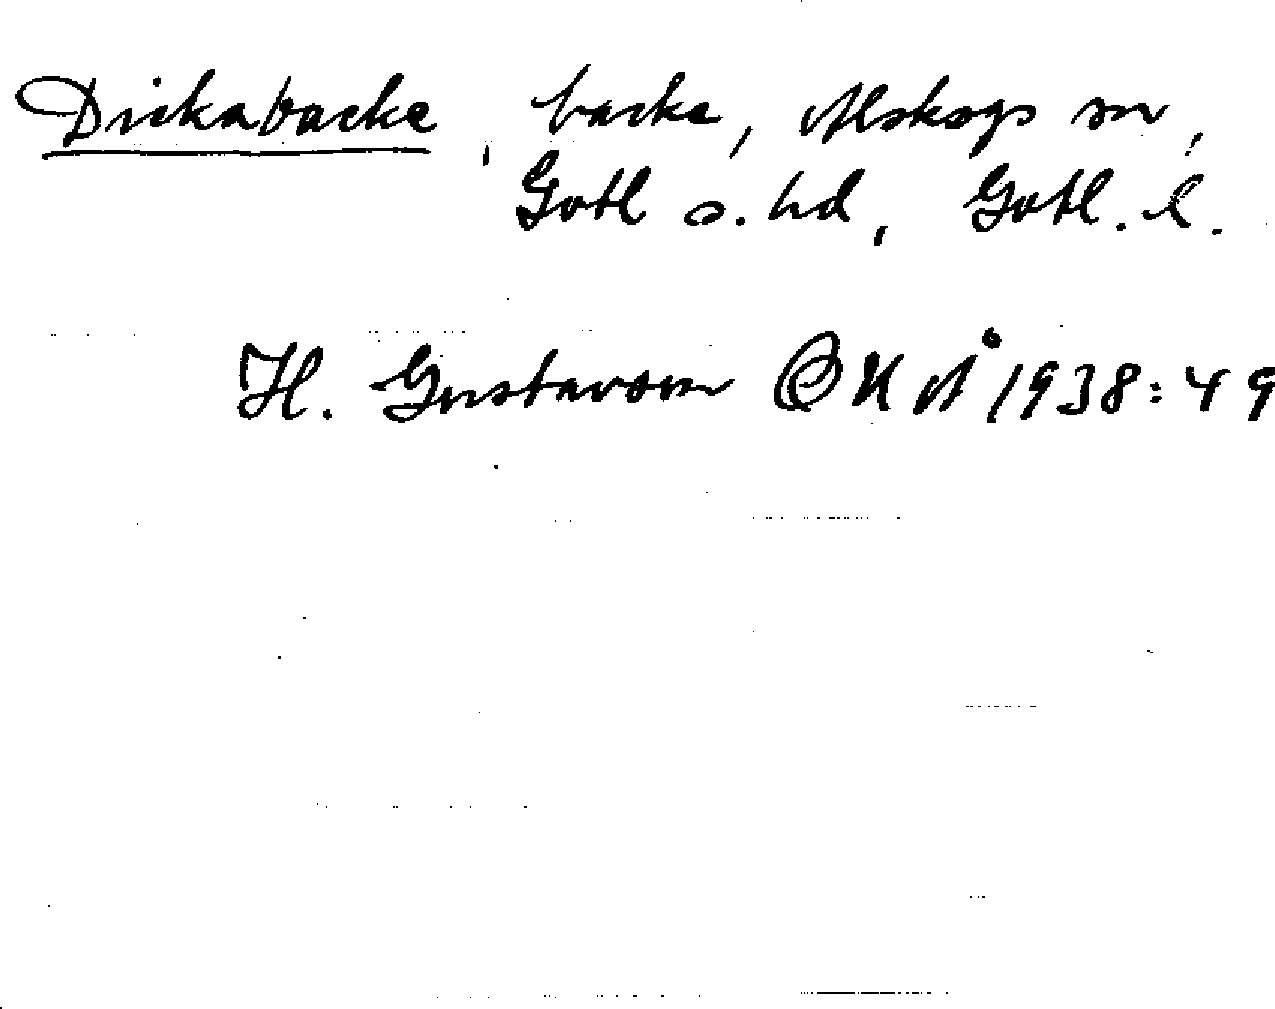 Drickabacke, backe, Alskogs sn,
Gotl s. hd, Gotl. l.
H. Gustavson OUÅ 1938:49